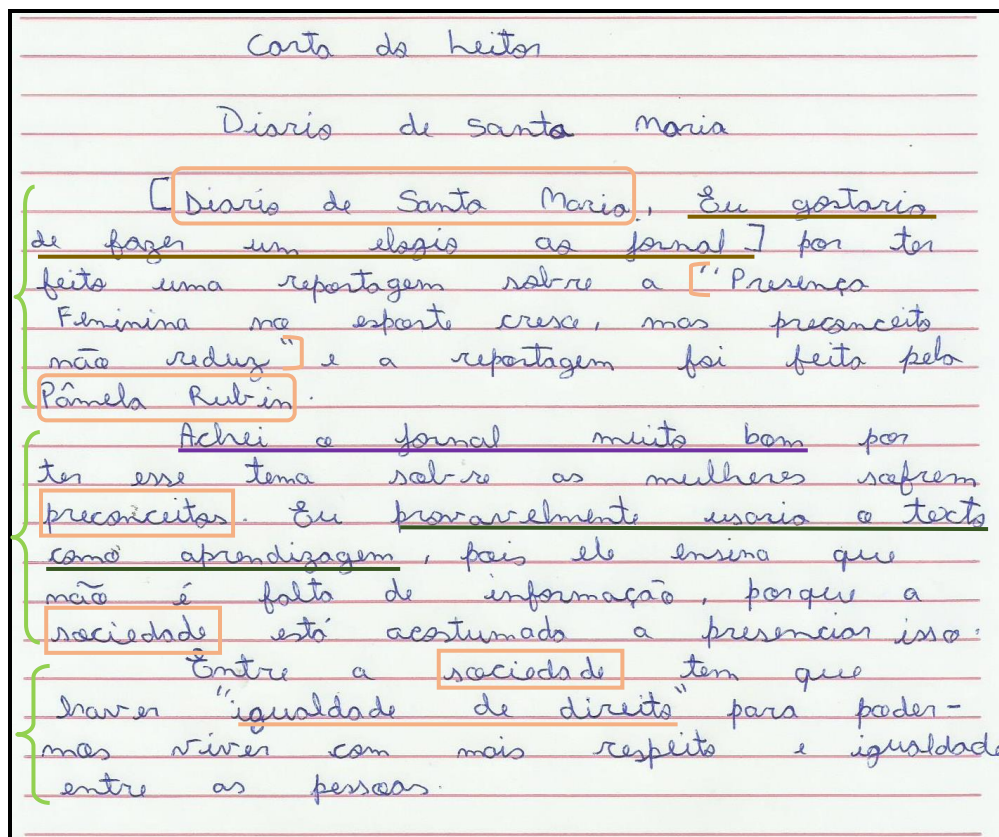 Carta do Leitor
Diario de Santa Maria
[Diario de Santa Maria, Eu gostaria
de fazer um elogio ao jornal] por ter
feito uma reportagem sobre a ["Presença
Feminina no esporte cresce, mas preconceito
não reduz"] e a reportagem foi feita pela
Pâmela Rubin.
Achei o jornal muito bom por
ter esse tema sobre as mulheres sofrem
preconceitos. Eu provavelmente usaria o texto
como aprendizagem, pois ele ensina que
não é falta de informação, porque a
sociedade está acostumada a presenciar isso.
Entre a sociedade tem que
haver "igualdade de direito" para poder-
mos viver com mais respeito e igualdade
entre as pessoas.